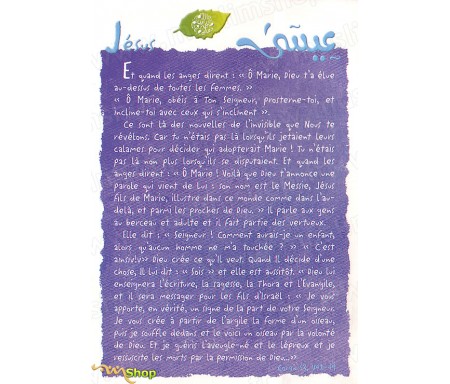 Jésus عيسى
Et quand les anges dirent : « Ô Marie, Dieu t'a élue
au-dessus de toutes les femmes. »
« Ô Marie, obéis à Ton Seigneur, prosterne-toi, et
incline-toi avec ceux qui s'inclinent ».
Ce sont là des nouvelles de l'invisible que Nous te
révélons. Car tu n'étais pas là lorsqu'ils jetaient leurs
calames pour décider qui adopterait Marie ! Tu n'étais
pas là non plus lorsqu'ils se disputaient. Et quand les
anges dirent : « Ô Marie ! Voilà que Dieu t'annonce une
parole qui vient de Lui : son nom est le Messie, Jésus
fils de Marie, illustre dans ce monde comme dans l'au-
delà, et parmi les proches de Dieu. » Il parle aux gens
au berceau et adulte et il fait partie des vertueux.
Elle dit : « Seigneur ! Comment aurais-je un enfant,
alors qu'aucun homme ne m'a touchée ? » « C'est
ainsi!» Dieu crée ce qu'Il veut. Quand Il décide d'une
chose, Il lui dit : « Sois » et elle est aussitôt. « Dieu lui
enseignera l'écriture, la sagesse, la Thora et l'Évangile,
et il sera messager pour les fils d'Israël : « Je vous
apporte, en vérité, un signe de la part de votre Seigneur.
Je vous crée à partir de l'argile la forme d'un oiseau,
puis je souffle dedans et le voici un oiseau par la volonté
de Dieu. Et je guéris l'aveugle-né et le lépreux et je
ressuscite les morts par la permission de Dieu...»
Shop